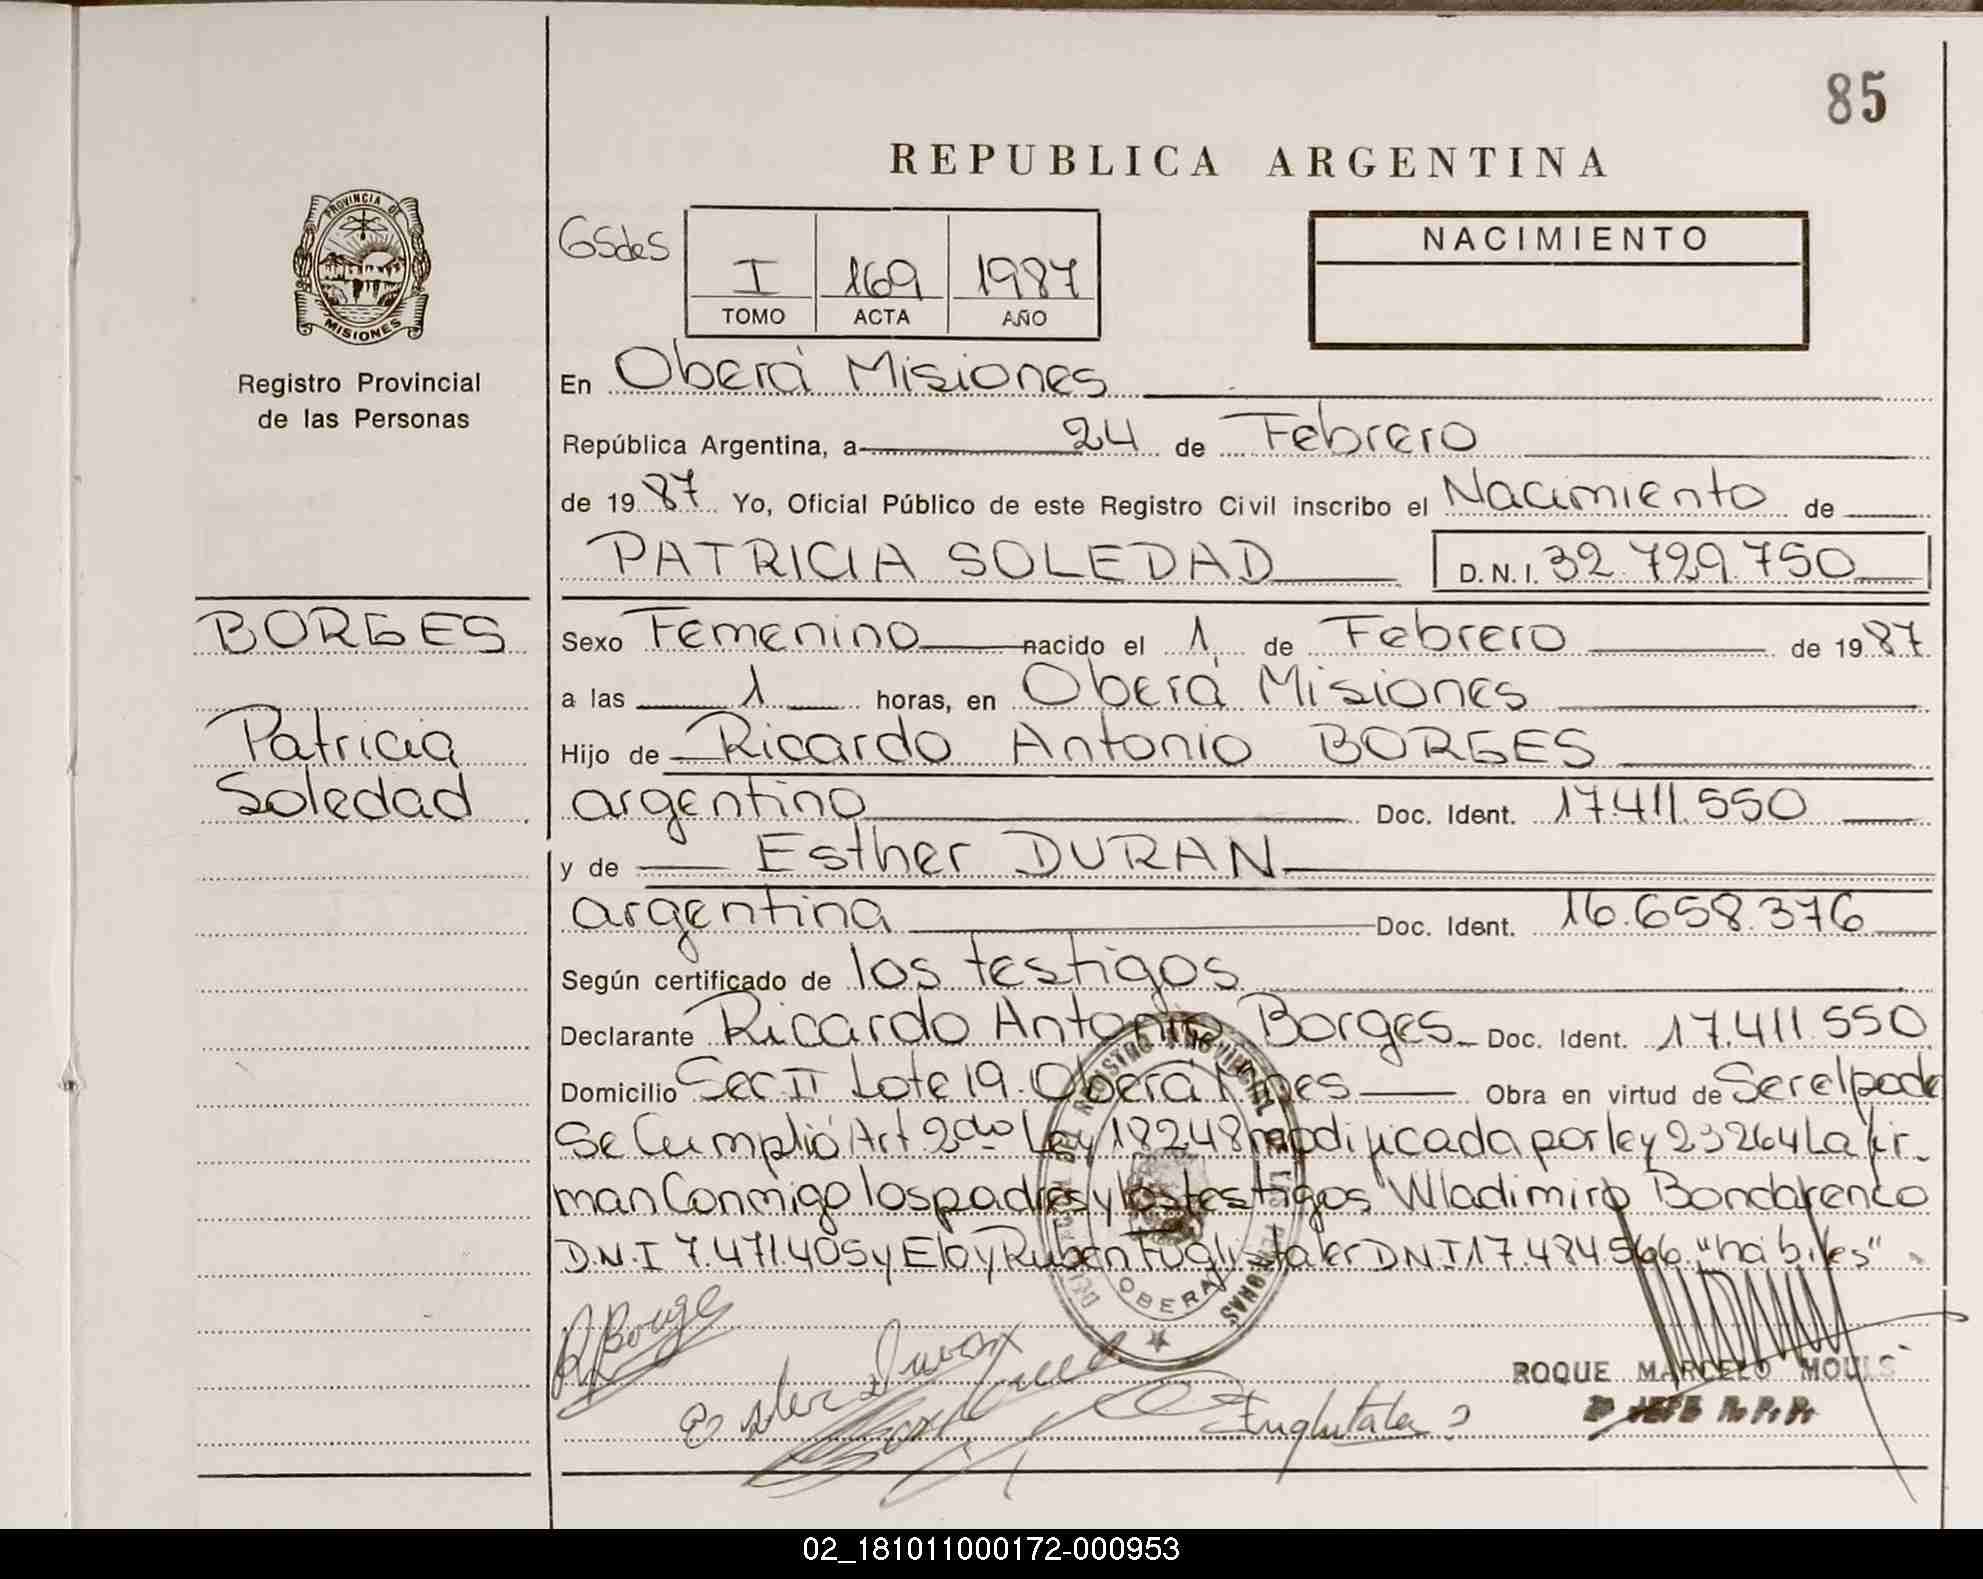 85
REPUBLICA ARGENTINA
PROVINCIA DE
MISIONES
Registro Provincial
de las Personas
GSdeS
I 169 1987
TOMO ACTA AÑO
NACIMIENTO
En Oberá Misiones
República Argentina, a 24 de Febrero
de 1987 Yo, Oficial Público de este Registro Civil inscribo el Nacimiento de
PATRICIA SOLEDAD D.N.I. 32.729.750
BORGES
Patricia
Soledad
Sexo Femenino nacido el 1 de Febrero de 1987
a las 1 horas, en Oberá Misiones
Hijo de Ricardo Antonio BORGES
argentino Doc. Ident. 17.411.550
y de Esther DURAN
argentina Doc. Ident. 16.658.376
Según certificado de los testigos
Declarante Ricardo Antonio Borges Doc. Ident. 17.411.550
Domicilio Sec II Lote 19. Oberá Mnes Obra en virtud de Ser el padre
Se Cumplió Art 2do Ley 18248 modificada por ley 23264 La fir-
man Conmigo los padres y los testigos Wladimiro Bondarenco
D.N.I 7.471.405 y Eloy Ruben Fuglistaler DNI 17.484.566 "hábiles"
OBERA
R Borge
Ester Duran
ROQUE MARCELO
JEFE R. P. P.
02_181011000172-000953